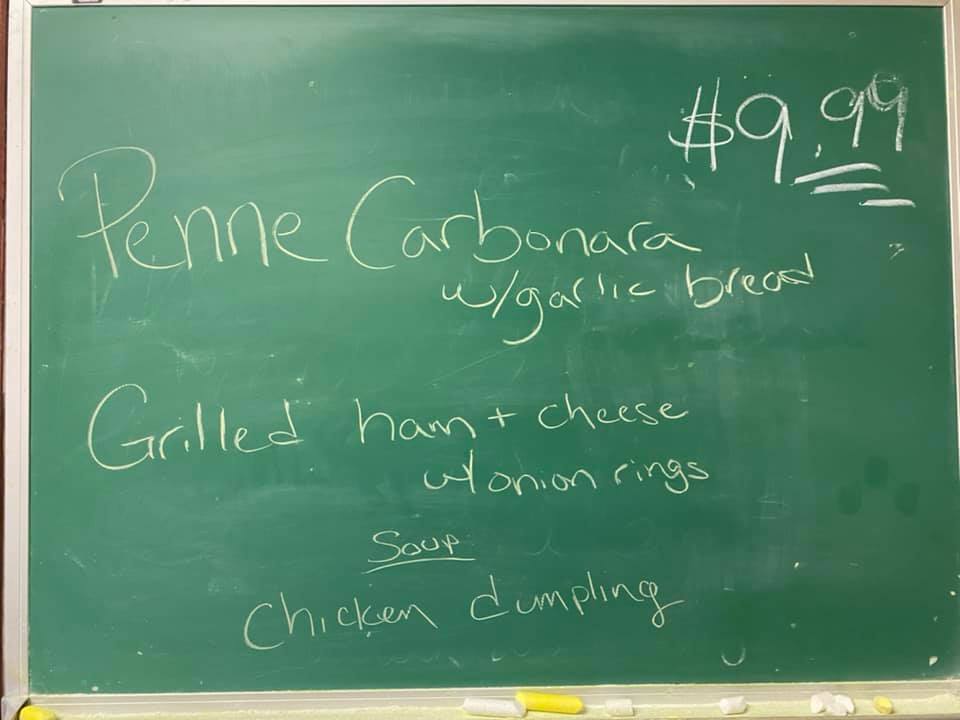 $9.99
Penne Carbonara
w/garlic bread
Grilled ham + cheese
w/onion rings
Soup
Chicken dumpling